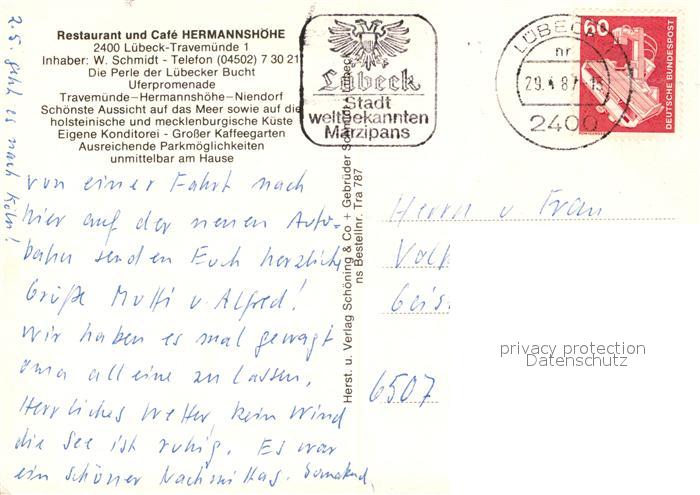 Restaurant und Café HERMANNSHÖHE
2400 Lübeck-Travemünde 1
Inhaber: W. Schmidt - Telefon (04502) 7 30 21
Die Perle der Lübecker Bucht
Uferpromenade
Travemünde–Hermannshöhe–Niendorf
Schönste Aussicht auf das Meer sowie auf die
holsteinische und mecklenburgische Küste
Eigene Konditorei - Großer Kaffeegarten
Ausreichende Parkmöglichkeiten
unmittelbar am Hause
2.5. geht es nach Köln!
von einer Fahrt nach
hier auf der neuen Auto-
bahn senden Euch herzliche
Grüße Mutti u. Alfred!
Wir haben es mal gewagt
Oma alleine zu lassen.
Herrliches Wetter, kein Wind
die See ist ruhig. Es war
ein schöner Nachmittag.
Herst. u. Verlag Schöning & Co + Gebrüder Schmidt, Lübeck
ns Bestellnr. Tra 787
Lübeck
Stadt
weltbekannten
Marzipans
LÜBECK
nr
29.4.87-15
2400
60
DEUTSCHE BUNDESPOST
Herrn u Frau
6507
privacy protection
Datenschutz